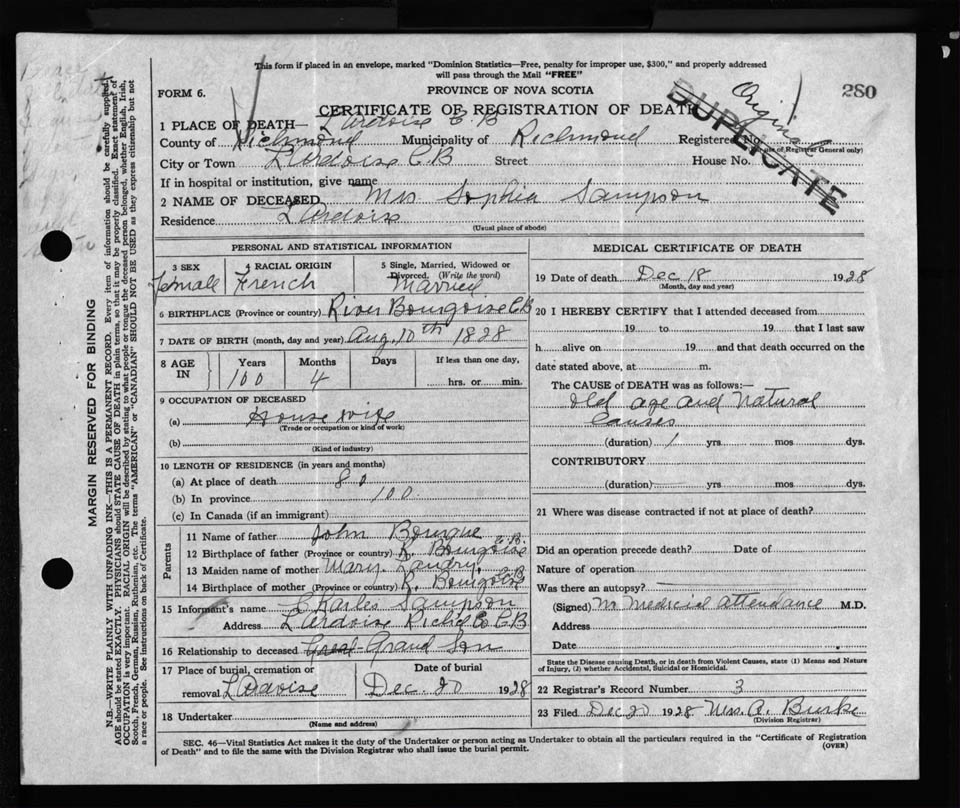 This form if placed in an envelope, marked "Dominion Statistics—Free, penalty for improper use, $300," and properly addressed
will pass through the Mail "FREE"
FORM 6.
PROVINCE OF NOVA SCOTIA
Original
280
CERTIFICATE OF REGISTRATION OF DEATH
DUPLICATE
1 PLACE OF DEATH— L'Ardoise C.B
County of Richmond Municipality of Richmond Registered No.
(For use of Registrar General only)
City or Town L'Ardoise C.B Street House No.
If in hospital or institution, give name
2 NAME OF DECEASED Mrs. Sophia Sampson
Residence L'Ardoise
(Usual place of abode)
PERSONAL AND STATISTICAL INFORMATION
3 SEX 4 RACIAL ORIGIN 5 Single, Married, Widowed or Divorced. (Write the word)
Female French Married
6 BIRTHPLACE (Province or country) River Bourgoise C.B
7 DATE OF BIRTH (month, day and year) Aug. 10th 1828
8 AGE IN Years Months Days If less than one day,
100 4 hrs. or min.
9 OCCUPATION OF DECEASED
(a) House wife
(Trade or occupation or kind of work)
(b)
(Kind of industry)
10 LENGTH OF RESIDENCE (in years and months)
(a) At place of death 80
(b) In province 100
(c) In Canada (if an immigrant)
Parents
11 Name of father John Bourque
12 Birthplace of father (Province or country) R. Bourgoise C.B.
13 Maiden name of mother Mary Landry
14 Birthplace of mother (Province or country) R. Bourgoise C.B
15 Informant's name Charles Sampson
Address L'Ardoise Richd Co C.B
16 Relationship to deceased Grand Son
17 Place of burial, cremation or removal L'Ardoise Date of burial Dec. 20 1928
18 Undertaker
(Name and address)
MEDICAL CERTIFICATE OF DEATH
19 Date of death Dec 18 1928
(Month, day and year)
20 I HEREBY CERTIFY that I attended deceased from
19 to 19 that I last saw
h alive on 19 and that death occurred on the
date stated above, at m.
The CAUSE OF DEATH was as follows:—
Old age and Natural
Causes
(duration) 1 yrs mos dys.
CONTRIBUTORY
(duration) yrs mos dys.
21 Where was disease contracted if not at place of death?
Did an operation precede death? Date of
Nature of operation
Was there an autopsy?
(Signed) Medicial attendance M.D.
Address
Date
State the Disease causing Death, or in death from Violent Causes, state (1) Means and Nature
of Injury, (2) whether Accidental, Suicidal or Homicidal.
22 Registrar's Record Number 3
23 Filed Dec 20 1928 Mrs. A. Burke
(Division Registrar)
SEC. 46—Vital Statistics Act makes it the duty of the Undertaker or person acting as Undertaker to obtain all the particulars required in the "Certificate of Registration
of Death" and to file the same with the Division Registrar who shall issue the burial permit.
(OVER)
MARGIN RESERVED FOR BINDING
N.B.—WRITE PLAINLY WITH UNFADING INK—THIS IS A PERMANENT RECORD. Every item of information should be carefully supplied.
AGE should be stated EXACTLY. PHYSICIANS should STATE CAUSE OF DEATH in plain terms, so that it may be properly classified. Exact statement of
OCCUPATION is very important. RACIAL ORIGIN will be described by stating to what people or tongue the deceased person belonged, whether English, Irish,
Scotch, French, German, Russian, Ruthenian, etc. The terms "AMERICAN" or "CANADIAN" SHOULD NOT BE USED as they express citizenship but not
a race or people. See instructions on back of Certificate.